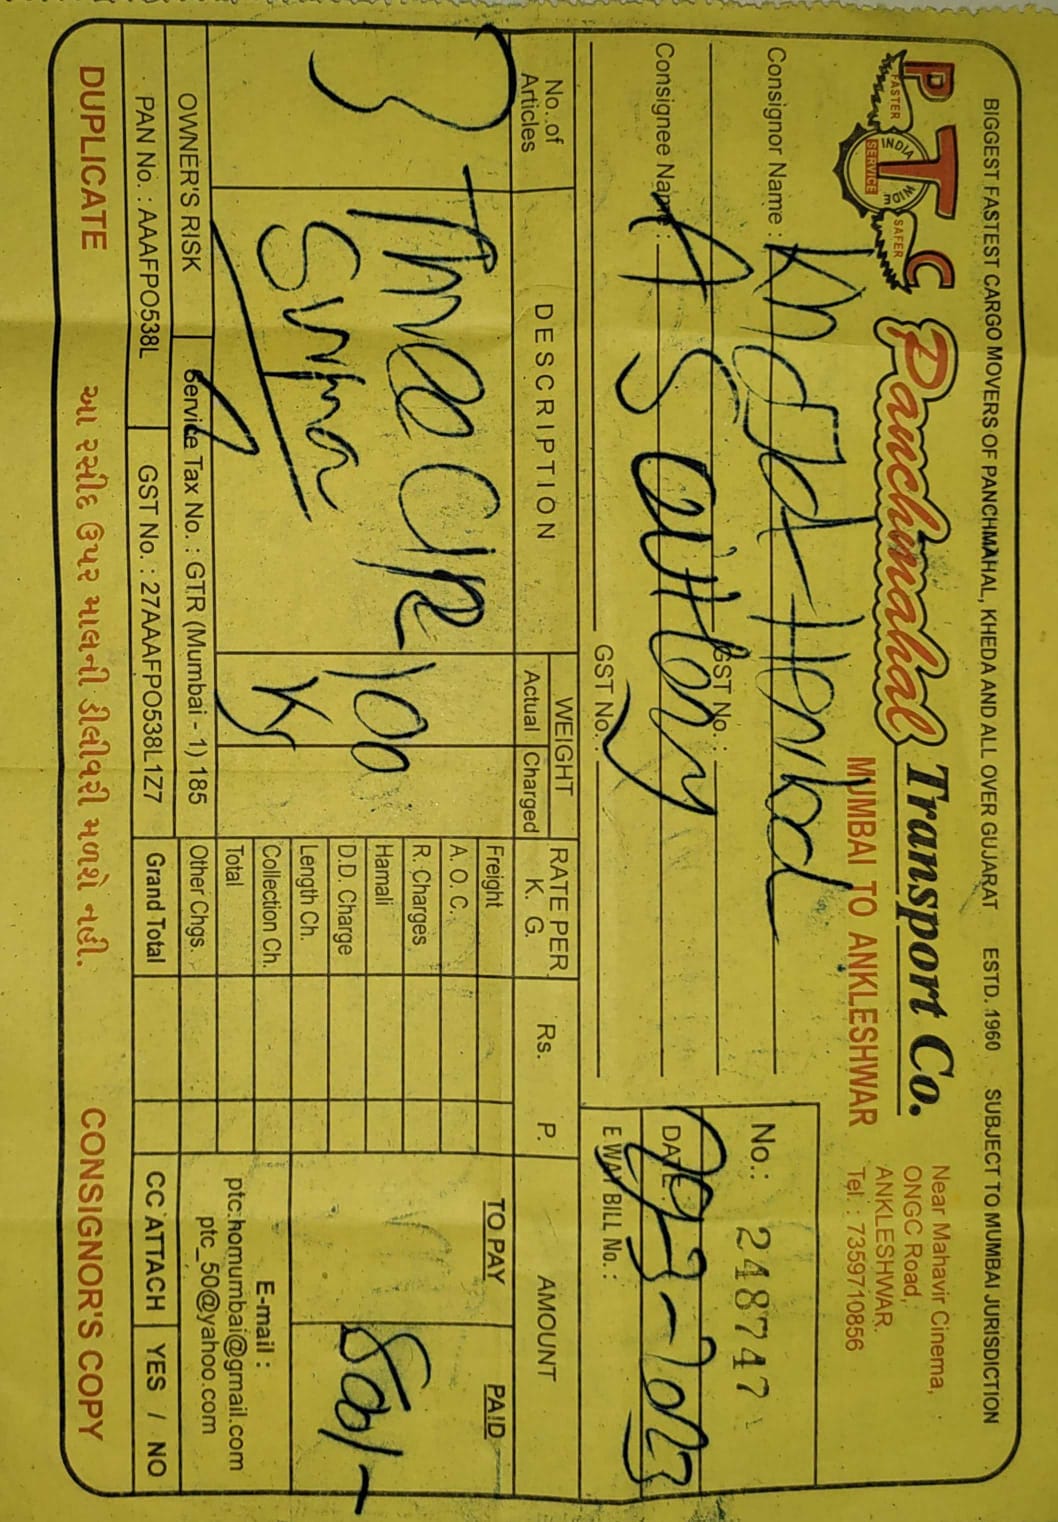 BIGGEST FASTEST CARGO MOVERS OF PANCHMAHAL, KHEDA AND ALL OVER GUJARAT ESTD. 1960 SUBJECT TO MUMBAI JURISDICTION
PTC
FASTER
SAFER
INDIA WIDE
SERVICE
Panchmahal Transport Co.
MUMBAI TO ANKLESHWAR
Near Mahavir Cinema,
ONGC Road,
ANKLESHWAR.
Tel. : 7359710856
Consignor Name :
GST No. :
Consignee Name : A S
GST No. :
No.: 24874
DATE :
E WAY BILL No. :
No. of Articles
DESCRIPTION
WEIGHT
Actual Charged
RATE PER K. G.
Rs. P.
AMOUNT
3
Three
100
Freight
A. O. C.
R. Charges
Hamali
D.D. Charge
Length Ch.
Collection Ch.
Total
Other Chgs.
Grand Total
TO PAY
PAID
E-mail :
ptc.homumbai@gmail.com
ptc_50@yahoo.com
OWNER'S RISK
Service Tax No. : GTR (Mumbai - 1) 185
PAN No. : AAAFPO538L
GST No. : 27AAAFPO538L1Z7
CC ATTACH YES / NO
DUPLICATE
આ રસીદ ઉપર માલની ડીલીવરી મળશે નહી.
CONSIGNOR'S COPY